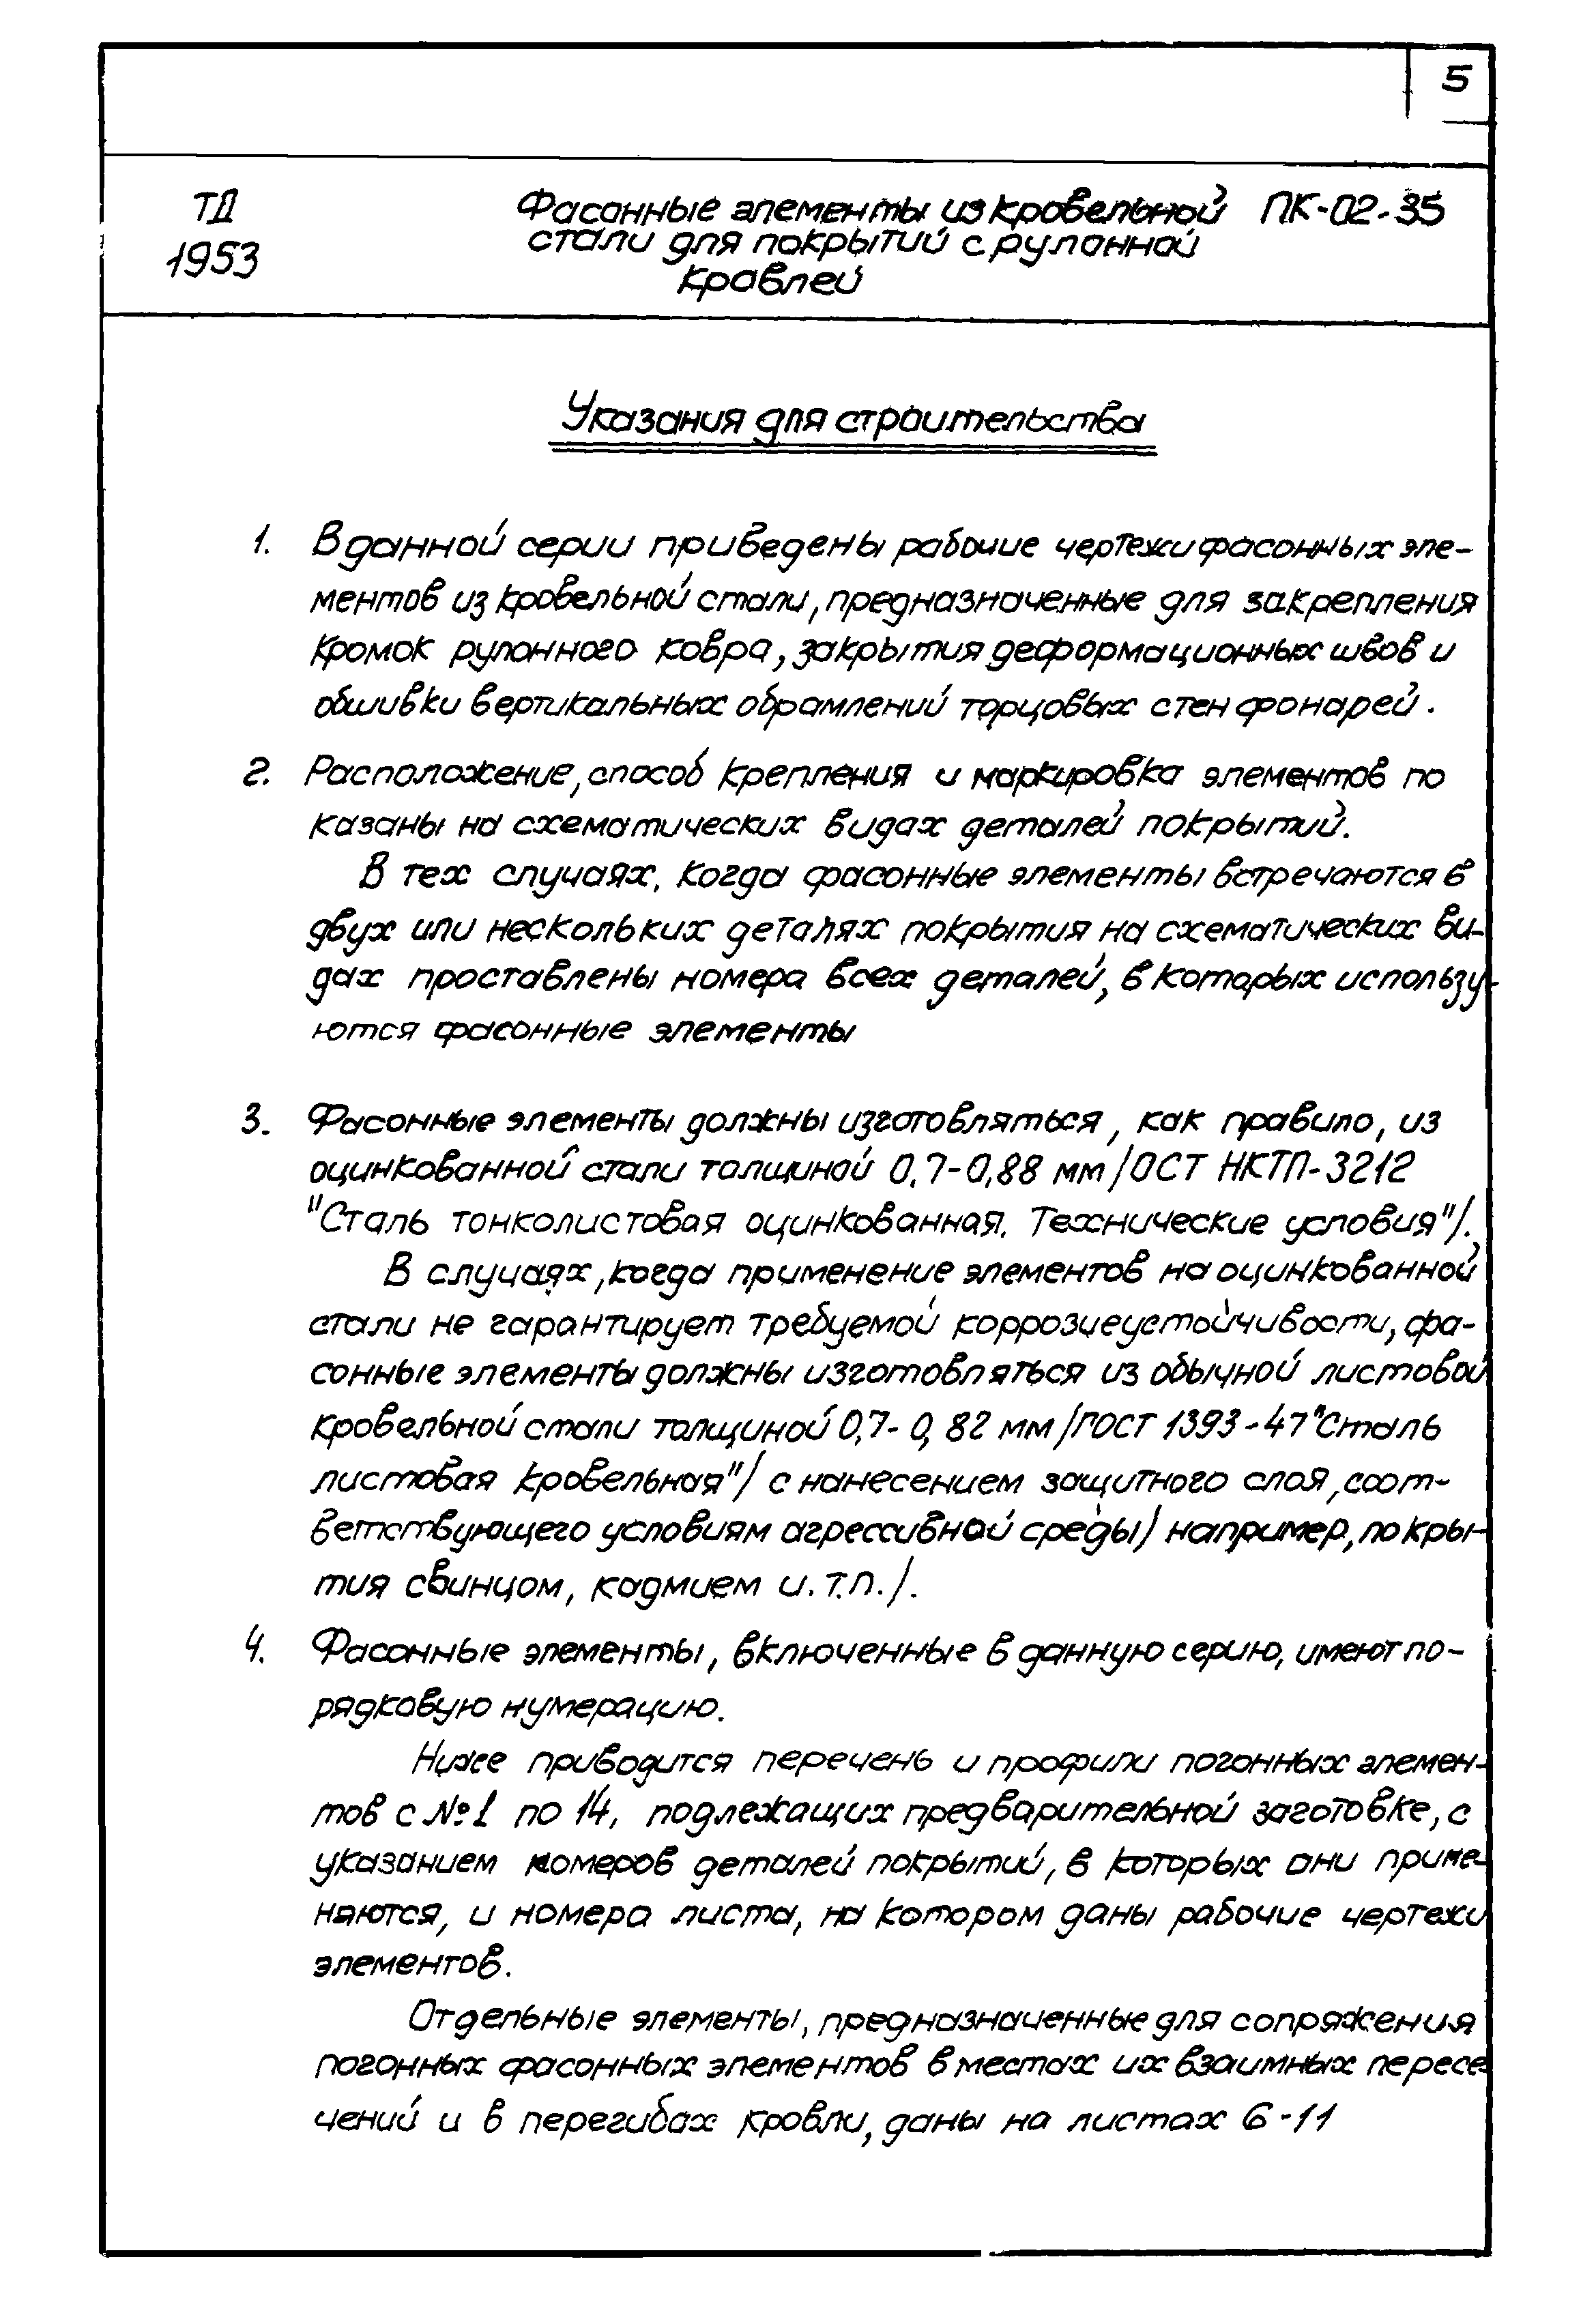 5
ТД
1953
Фасонные элементы из кровельной
стали для покрытий с рулонной
кровлей
ПК-02-35
Указания для строительства
1. В данной серии приведены рабочие чертежи фасонных эле-
ментов из кровельной стали, предназначенные для закрепления
кромок рулонного ковра, закрытия деформационных швов и
обшивки вертикальных обрамлений торцовых стен фонарей.
2. Расположение, способ крепления и маркировка элементов по
казаны на схематических видах деталей покрытий.
В тех случаях, когда фасонные элементы встречаются в
двух или нескольких деталях покрытия на схематических ви-
дах проставлены номера всех деталей, в которых использу-
ются фасонные элементы
3. Фасонные элементы должны изготовляться, как правило, из
оцинкованной стали толщиной 0,7-0,88 мм /ОСТ НКТП-3212
"Сталь тонколистовая оцинкованная. Технические условия"/.
В случаях, когда применение элементов на оцинкованной
стали не гарантирует требуемой коррозиеустойчивости, фа-
сонные элементы должны изготовляться из обычной листовой
кровельной стали толщиной 0,7- 0,82 мм /ГОСТ 1393-47 "Сталь
листовая кровельная"/ с нанесением защитного слоя, соот-
ветствующего условиям агрессивной среды/ например, покры-
тия свинцом, кадмием и.т.п./.
4. Фасонные элементы, включенные в данную серию, имеют по-
рядковую нумерацию.
Ниже приводится перечень и профили погонных элемен-
тов с №1 по 14, подлежащих предварительной заготовке, с
указанием номеров деталей покрытий, в которых они приме-
няются, и номера листа, на котором даны рабочие чертежи
элементов.
Отдельные элементы, предназначенные для сопряжения
погонных фасонных элементов в местах их взаимных пересе-
чений и в перегибах кровли, даны на листах 6-11